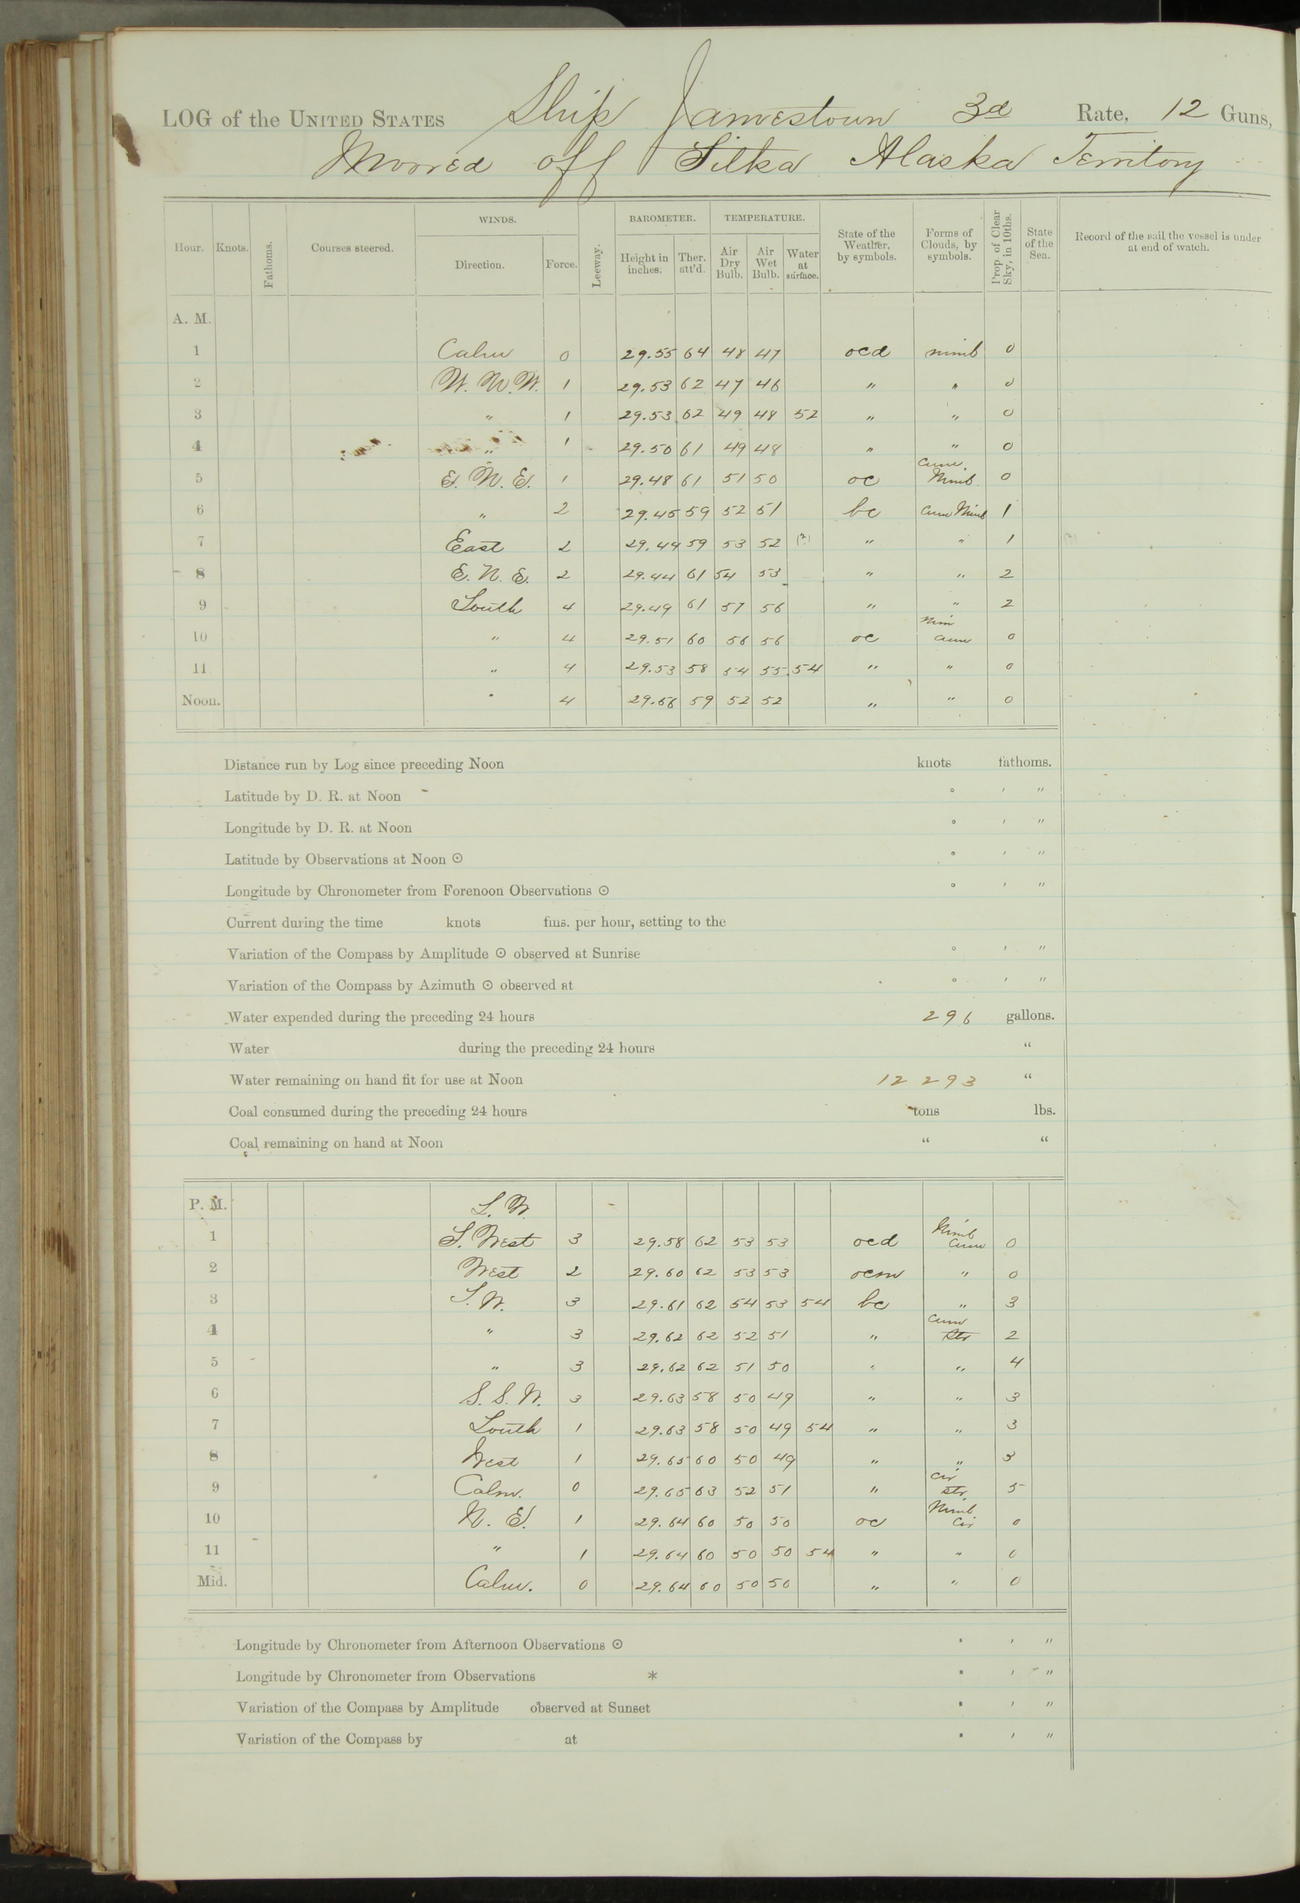 LOG of the UNITED STATES Ship Jamestown 3d Rate, 12 Guns,
Moored off Sitka Alaska Territory
Hour. Knots. Fathoms. Courses steered. WINDS. Direction. Force. Leeway. BAROMETER. Height in inches. Ther. att'd. TEMPERATURE. Air Dry Bulb. Air Wet Bulb. Water at surface. State of the Weather, by symbols. Forms of Clouds, by symbols. Prop. of Clear Sky, in 10ths. State of the Sea. Record of the sail the vessel is under at end of watch.
A. M.
1 Calm 0 29.55 64 48 47 ocd nimb 0
2 W. N. W. 1 29.53 62 47 46 " " 0
3 " 1 29.53 62 49 48 52 " " 0
4 " 1 29.50 61 49 48 " " 0
5 E. N. E. 1 29.48 61 51 50 oc Cum. Nimb 0
6 " 2 29.45 59 52 51 bc Cum Nimb 1
7 East 2 29.44 59 53 52 (?) " " 1
8 E. N. E. 2 29.44 61 54 53 " " 2
9 South 4 29.49 61 57 56 " " 2
10 " 4 29.51 60 56 56 oc Nim Cum 0
11 " 4 29.53 58 54 55 54 " " 0
Noon. " 4 29.56 59 52 52 " " 0
Distance run by Log since preceding Noon knots fathoms.
Latitude by D. R. at Noon ° ' "
Longitude by D. R. at Noon ° ' "
Latitude by Observations at Noon ⊙ ° ' "
Longitude by Chronometer from Forenoon Observations ⊙ ° ' "
Current during the time knots fms. per hour, setting to the
Variation of the Compass by Amplitude ⊙ observed at Sunrise ° ' "
Variation of the Compass by Azimuth ⊙ observed at ° ' "
Water expended during the preceding 24 hours 296 gallons.
Water during the preceding 24 hours "
Water remaining on hand fit for use at Noon 12 293 "
Coal consumed during the preceding 24 hours tons lbs.
Coal remaining on hand at Noon " "
P. M. S. W.
1 S. West 3 29.58 62 53 53 ocd Nimb Cum 0
2 West 2 29.60 62 53 53 ocm " 0
3 S. W. 3 29.61 62 54 53 54 bc " 3
4 " 3 29.62 62 52 51 " Cum Str 2
5 " 3 29.62 62 51 50 " " 4
6 S. S. W. 3 29.63 58 50 49 " " 3
7 South 1 29.63 58 50 49 54 " " 3
8 West 1 29.65 60 50 49 " " 3
9 Calm. 0 29.65 63 52 51 " Cir Str 5
10 N. E. 1 29.64 60 50 50 oc Nimb Cir 0
11 " 1 29.64 60 50 50 54 " " 0
Mid. Calm. 0 29.64 60 50 50 " " 0
Longitude by Chronometer from Afternoon Observations ⊙ ° ' "
Longitude by Chronometer from Observations * ° ' "
Variation of the Compass by Amplitude observed at Sunset ° ' "
Variation of the Compass by at ° ' "